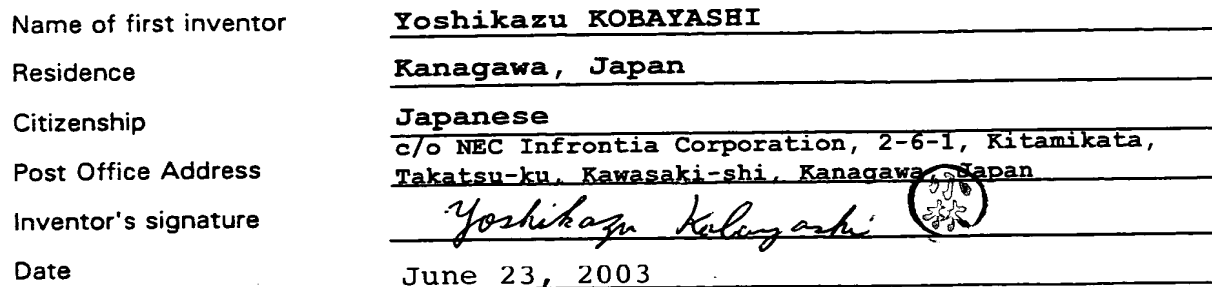 Name of first inventor Yoshikazu KOBAYASHI
Residence Kanagawa, Japan
Citizenship Japanese
c/o NEC Infrontia Corporation, 2-6-1, Kitamikata,
Post Office Address Takatsu-ku, Kawasaki-shi, Kanagawa, Japan
Inventor's signature Yoshikazu Kobayashi 小林
Date June 23, 2003